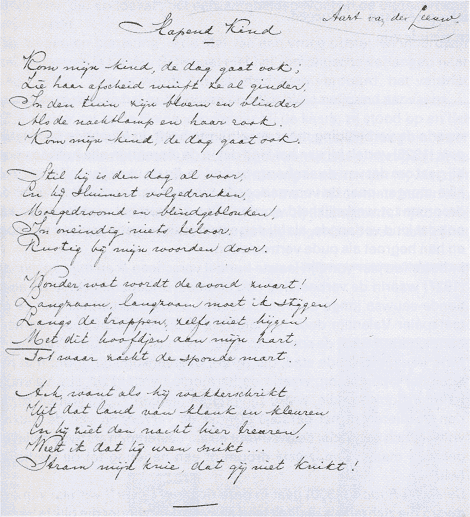 Slapend Kind
Aart van der Leeuw.
Kom mijn kind, de dag gaat ook;
Zie haar afscheid wuift ze al ginder,
In den tuin zijn bloem en vlinder
Als de nachtlamp en haar rook.
Kom mijn kind, de dag gaat ook.
Stil hij is den dag al voor,
En hij sluimert volgedronken,
Moegedroomd en blindgeblonken,
In oneindig niets te loor,
Rustig bij mijn woorden door.
Wonder, wat wordt de avond zwart!
Langzaam, langzaam moet ik stijgen
Langs de trappen, zelfs niet hijgen
Met dit hoofdjen aan mijn hart,
Tot waar zacht de sponde mart.
Ach, want als hij wakkerschrikt
Uit dat land van klank en kleuren
En hij ziet den nacht hier treuren
Weet ik dat hij uren snikt...
Stram mijn knie, dat gij niet knikt!